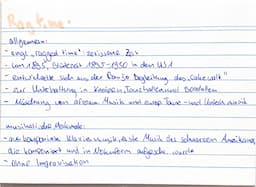 Ragtime:
allgemein:
- engl. "ragged time" zerrissene Zeit
- um 1895, Blütezeit 1895-1930 in den USA
- entwickelte sich aus der Banjo Begleitung des "Cakewalk"
- zur Unterhaltung in Kneipen, Tanzhallen und Bordellen
- Mischung von afroam. Musik und europ. Tanz- und Unterh.musik
musikalische Merkmale:
- auskomponierte Klaviermusik, erste Musik des schwarzen Amerikaners,
die komponiert und in Notenform aufgeschr. wurde
- ohne Improvisation